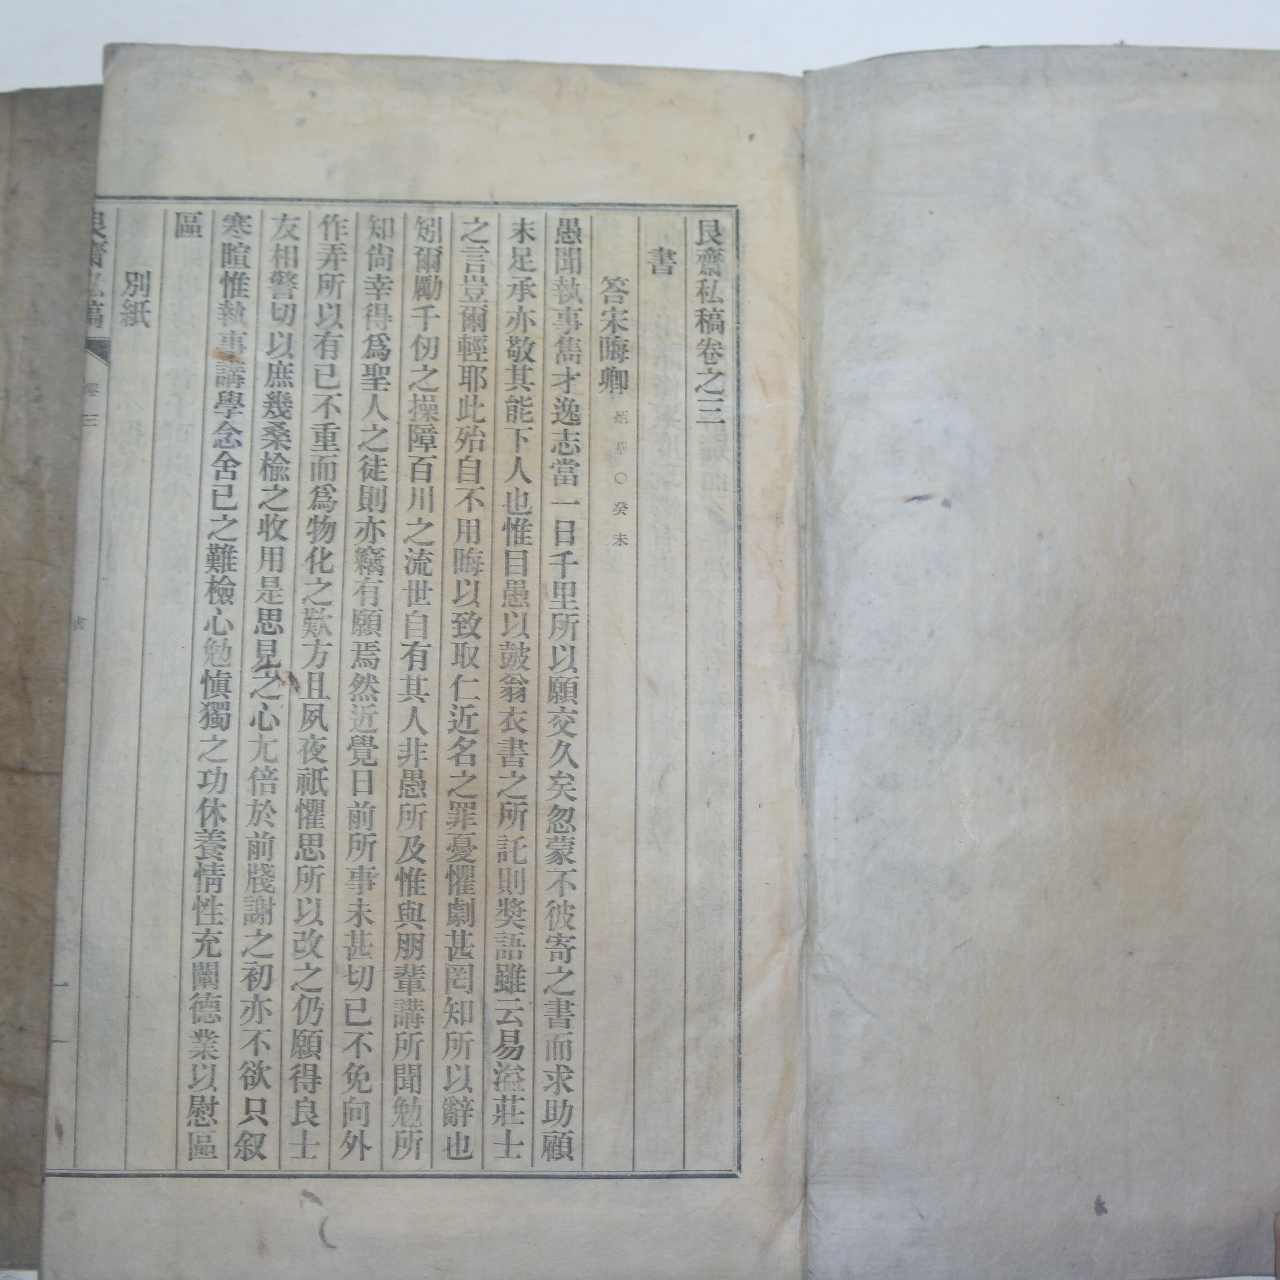 艮齋私稿卷之三
書
答宋晦卿 炳華○癸未
愚聞執事雋才逸志當一日千里所以願交久矣忽蒙不彼寄之書而求助顧
末足承亦敬其能下人也惟目愚以皷翁衣書之所託則奬語雖云易溢莊士
之言豈爾輕耶此殆自不用晦以致取仁近名之罪憂懼劇甚罔知所以辭也
矧爾勵千仞之操障百川之流世自有其人非愚所及惟與朋輩講所聞勉所
知尙幸得爲聖人之徒則亦竊有願焉然近覺日前所事未甚切已不免向外
作弄所以有已不重而爲物化之歎方且夙夜祇懼思所以改之仍願得良士
友相警切以庶幾桑楡之收用是思見之心尢倍於前牋謝之初亦不欲只叙
寒暄惟執事講學念舍已之難檢心勉愼獨之功休養情性充闡德業以慰區
區
別紙
艮齋私稿 卷三 書 一